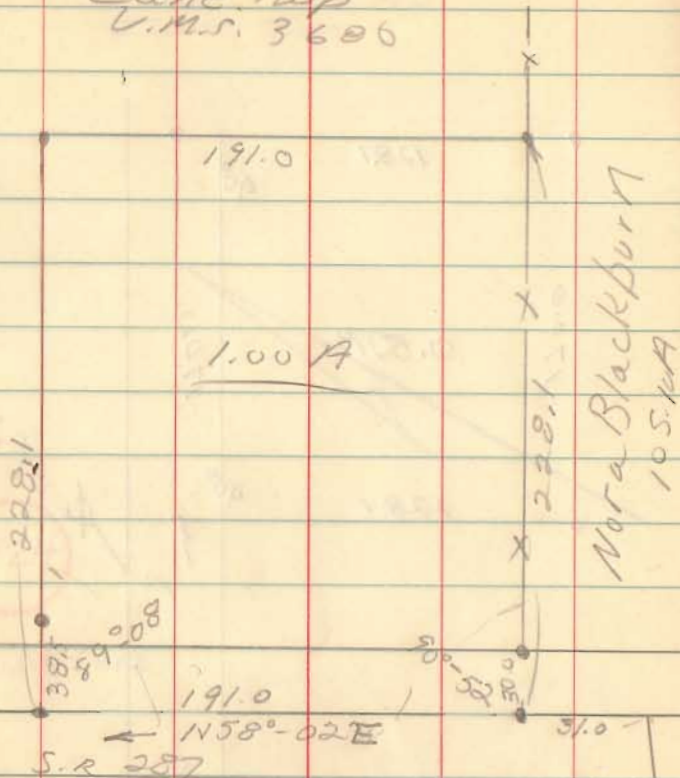 V.M.S. 3686
191.0
1.00 A
228.1
228.1
Nora Blackburn
38.5
89°-08
90°-52
30.0
191.0
31.0
N58°-02E
S.R 287